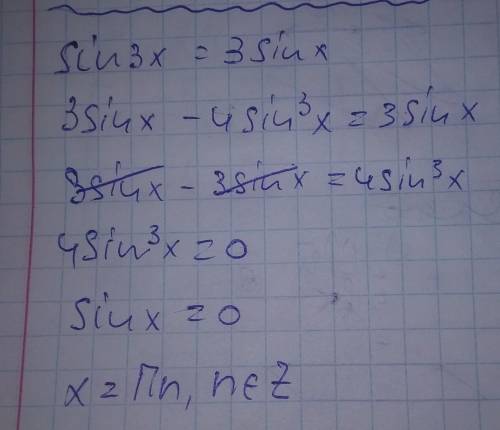 sin3x = 3sinx
3sinx - 4sin³x = 3sinx
3sinx - 3sinx = 4sin³x
4sin³x = 0
sinx = 0
x = Пn, n∈Z